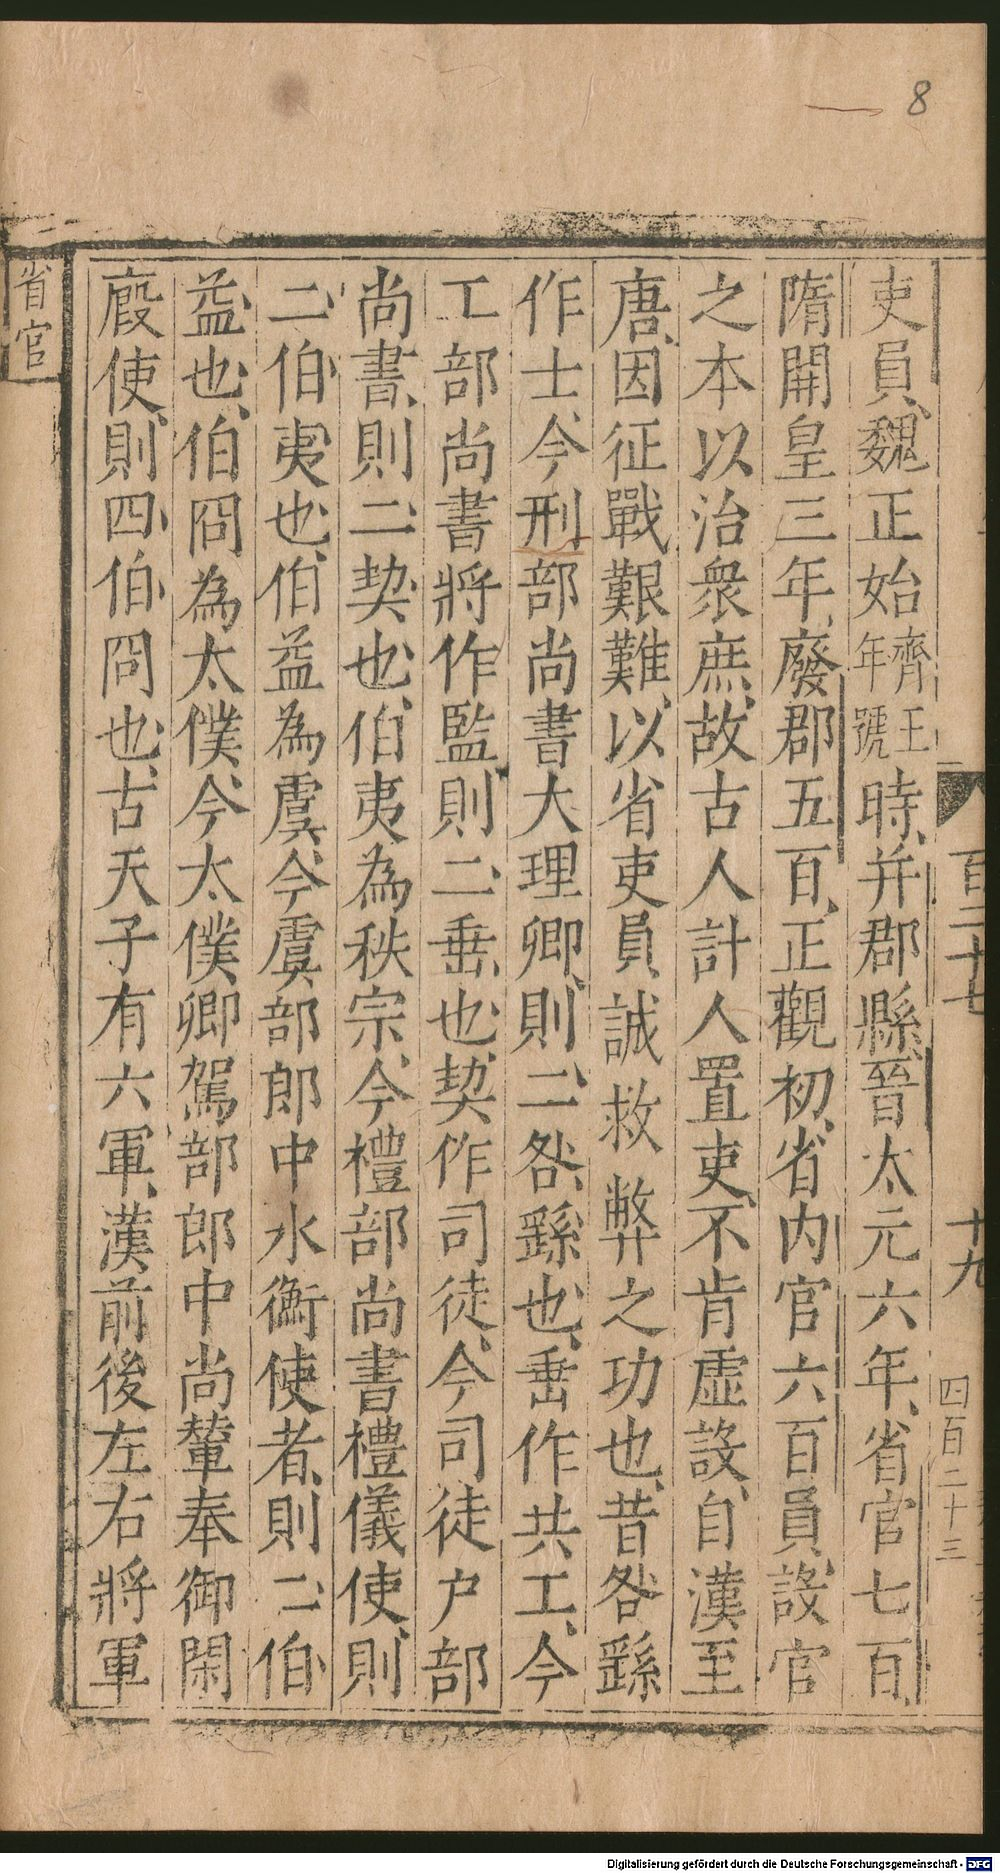 8
百二十七
十九
四百二十三
吏員魏正始齊王年號時并郡縣晉太元六年省官七百
隋開皇三年廢郡五百正觀初省內官六百員設官
之本以治衆庶故古人計人置吏不肯虛設自漢至
唐因征戰艱難以省吏員誠救弊之功也昔咎繇
作士今刑部尚書大理卿則二咎繇也垂作共工今
工部尚書將作監則二垂也契作司徒今司徒户部
尚書則二契也伯夷為秩宗今禮部尚書禮儀使則
二伯夷也伯益為虞今虞部郎中水衡使者則二伯
益也伯冏為太僕今太僕卿駕部郎中尚輦奉御閑
廄使則四伯冏也古天子有六軍漢前後左右將軍
省官
Digitalisierung gefördert durch die Deutsche Forschungsgemeinschaft - DFG